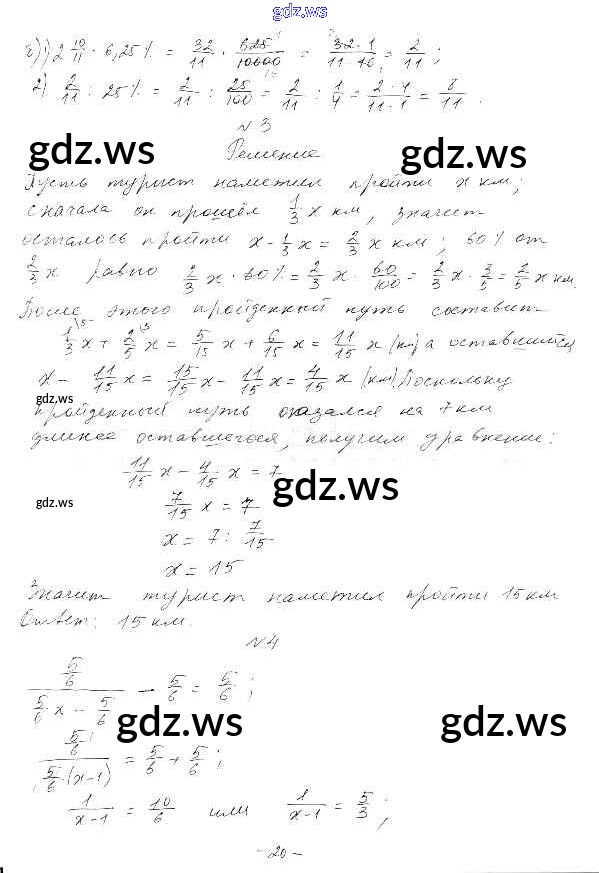 gdz.ws
г) 1) 2 10/11 · 6,25% = 32/11 · 625/10000 = 32·1/11·16 = 2/11 ;
2) 2/11 : 25% = 2/11 : 25/100 = 2/11 : 1/4 = 2·4/11·1 = 8/11 .
№3
gdz.ws gdz.ws
Решение
Пусть турист наметил пройти x км;
сначала он прошёл 1/3 x км, значит
осталось пройти x - 1/3 x = 2/3 x км; 60% от
2/3 x равно 2/3 x · 60% = 2/3 x · 60/100 = 2/3 x · 3/5 = 2/5 x км.
После этого пройденный путь составит
1/3 x + 2/5 x = 5/15 x + 6/15 x = 11/15 x (км) а оставшийся
x - 11/15 x = 15/15 x - 11/15 x = 4/15 x (км). Поскольку
gdz.ws gdz.ws
пройденный путь оказался на 7 км
длиннее оставшегося, получим уравнение:
11/15 x - 4/15 x = 7
gdz.ws gdz.ws gdz.ws
7/15 x = 7
x = 7 : 7/15
x = 15
Значит турист наметил пройти 15 км
Ответ: 15 км.
№4
5/6 / (5/6 x - 5/6) - 5/6 = 5/6 ;
gdz.ws gdz.ws
5/6 / (5/6 (x-1)) = 5/6 + 5/6 ;
1/(x-1) = 10/6 или 1/(x-1) = 5/3 ;
- 20 -